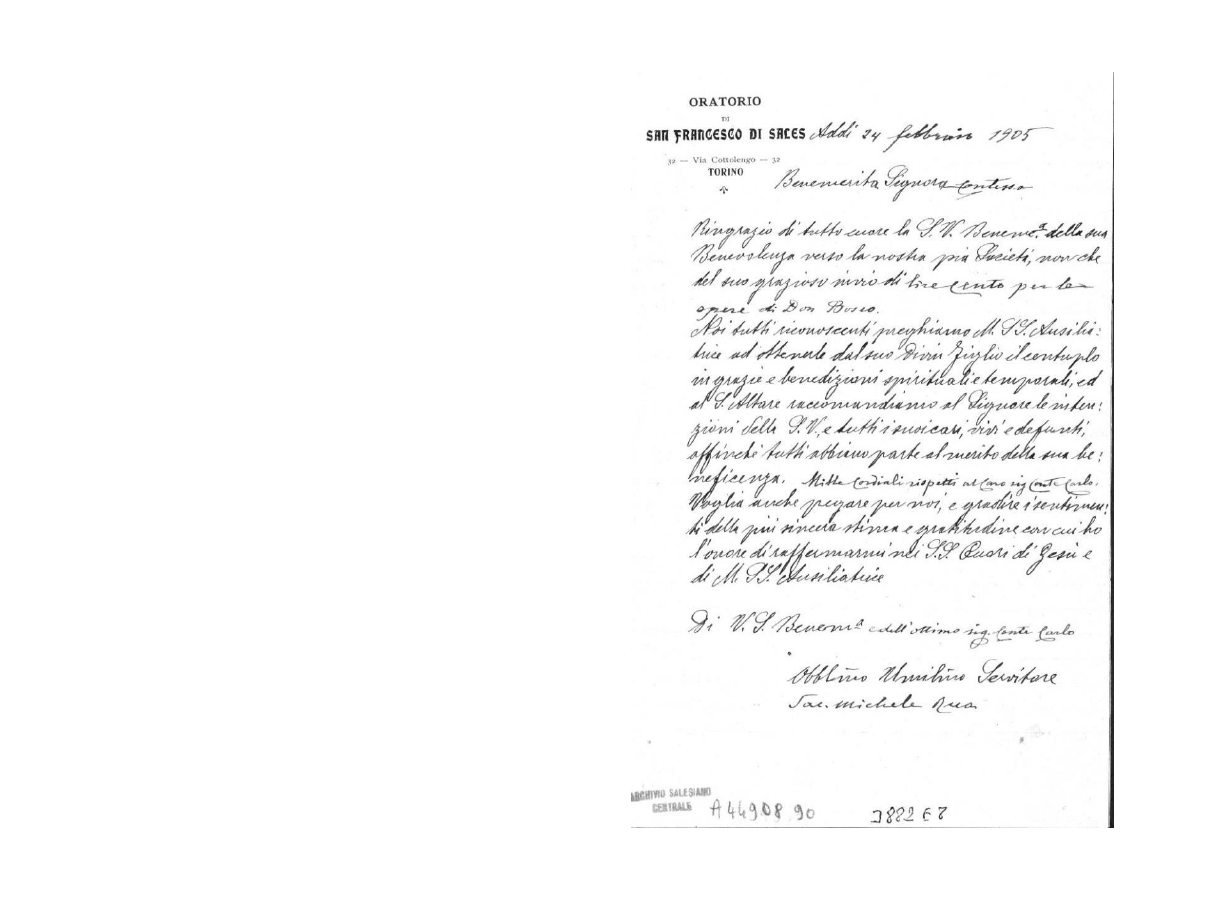 ORATORIO
DI
SAN FRANCESCO DI SALES Addi 24 febbraio 1905
32 — Via Cottolengo — 32
TORINO
Benemerita Signora Contessa
Ringrazio di tutto cuore la S. V. Beneme.ª della sua
Benevolenza verso la nostra pia Società, non che
del suo grazioso invio di lire cento per le
opere di Don Bosco.
Noi tutti riconoscenti preghiamo M. SS. Ausilia:
trice ad ottenerle dal suo Divin Figlio il centuplo
in grazie e benedizioni spirituali e temporali, ed
al S. Altare raccomandiamo al Signore le inten:
zioni della S. V. e tutti i suoi cari, vivi e defunti,
affinchè tutti abbiano parte al merito della sua be:
neficenza. Mille cordiali rispetti al Caro sig Conte Carlo.
Voglia anche pregare per noi, e gradire i sentimen:
ti della più sincera stima e gratitudine con cui ho
l'onore di raffermarmi nei S.S. Cuori di Gesù e
di M. SS. Ausiliatrice
Di V. S. Benemª e dell'ottimo sig. Conte Carlo
Obblmo Umilmo Servitore
Sac. Michele Rua
ARCHIVIO SALESIANO
CENTRALE A 449 08 90 3882 E 7